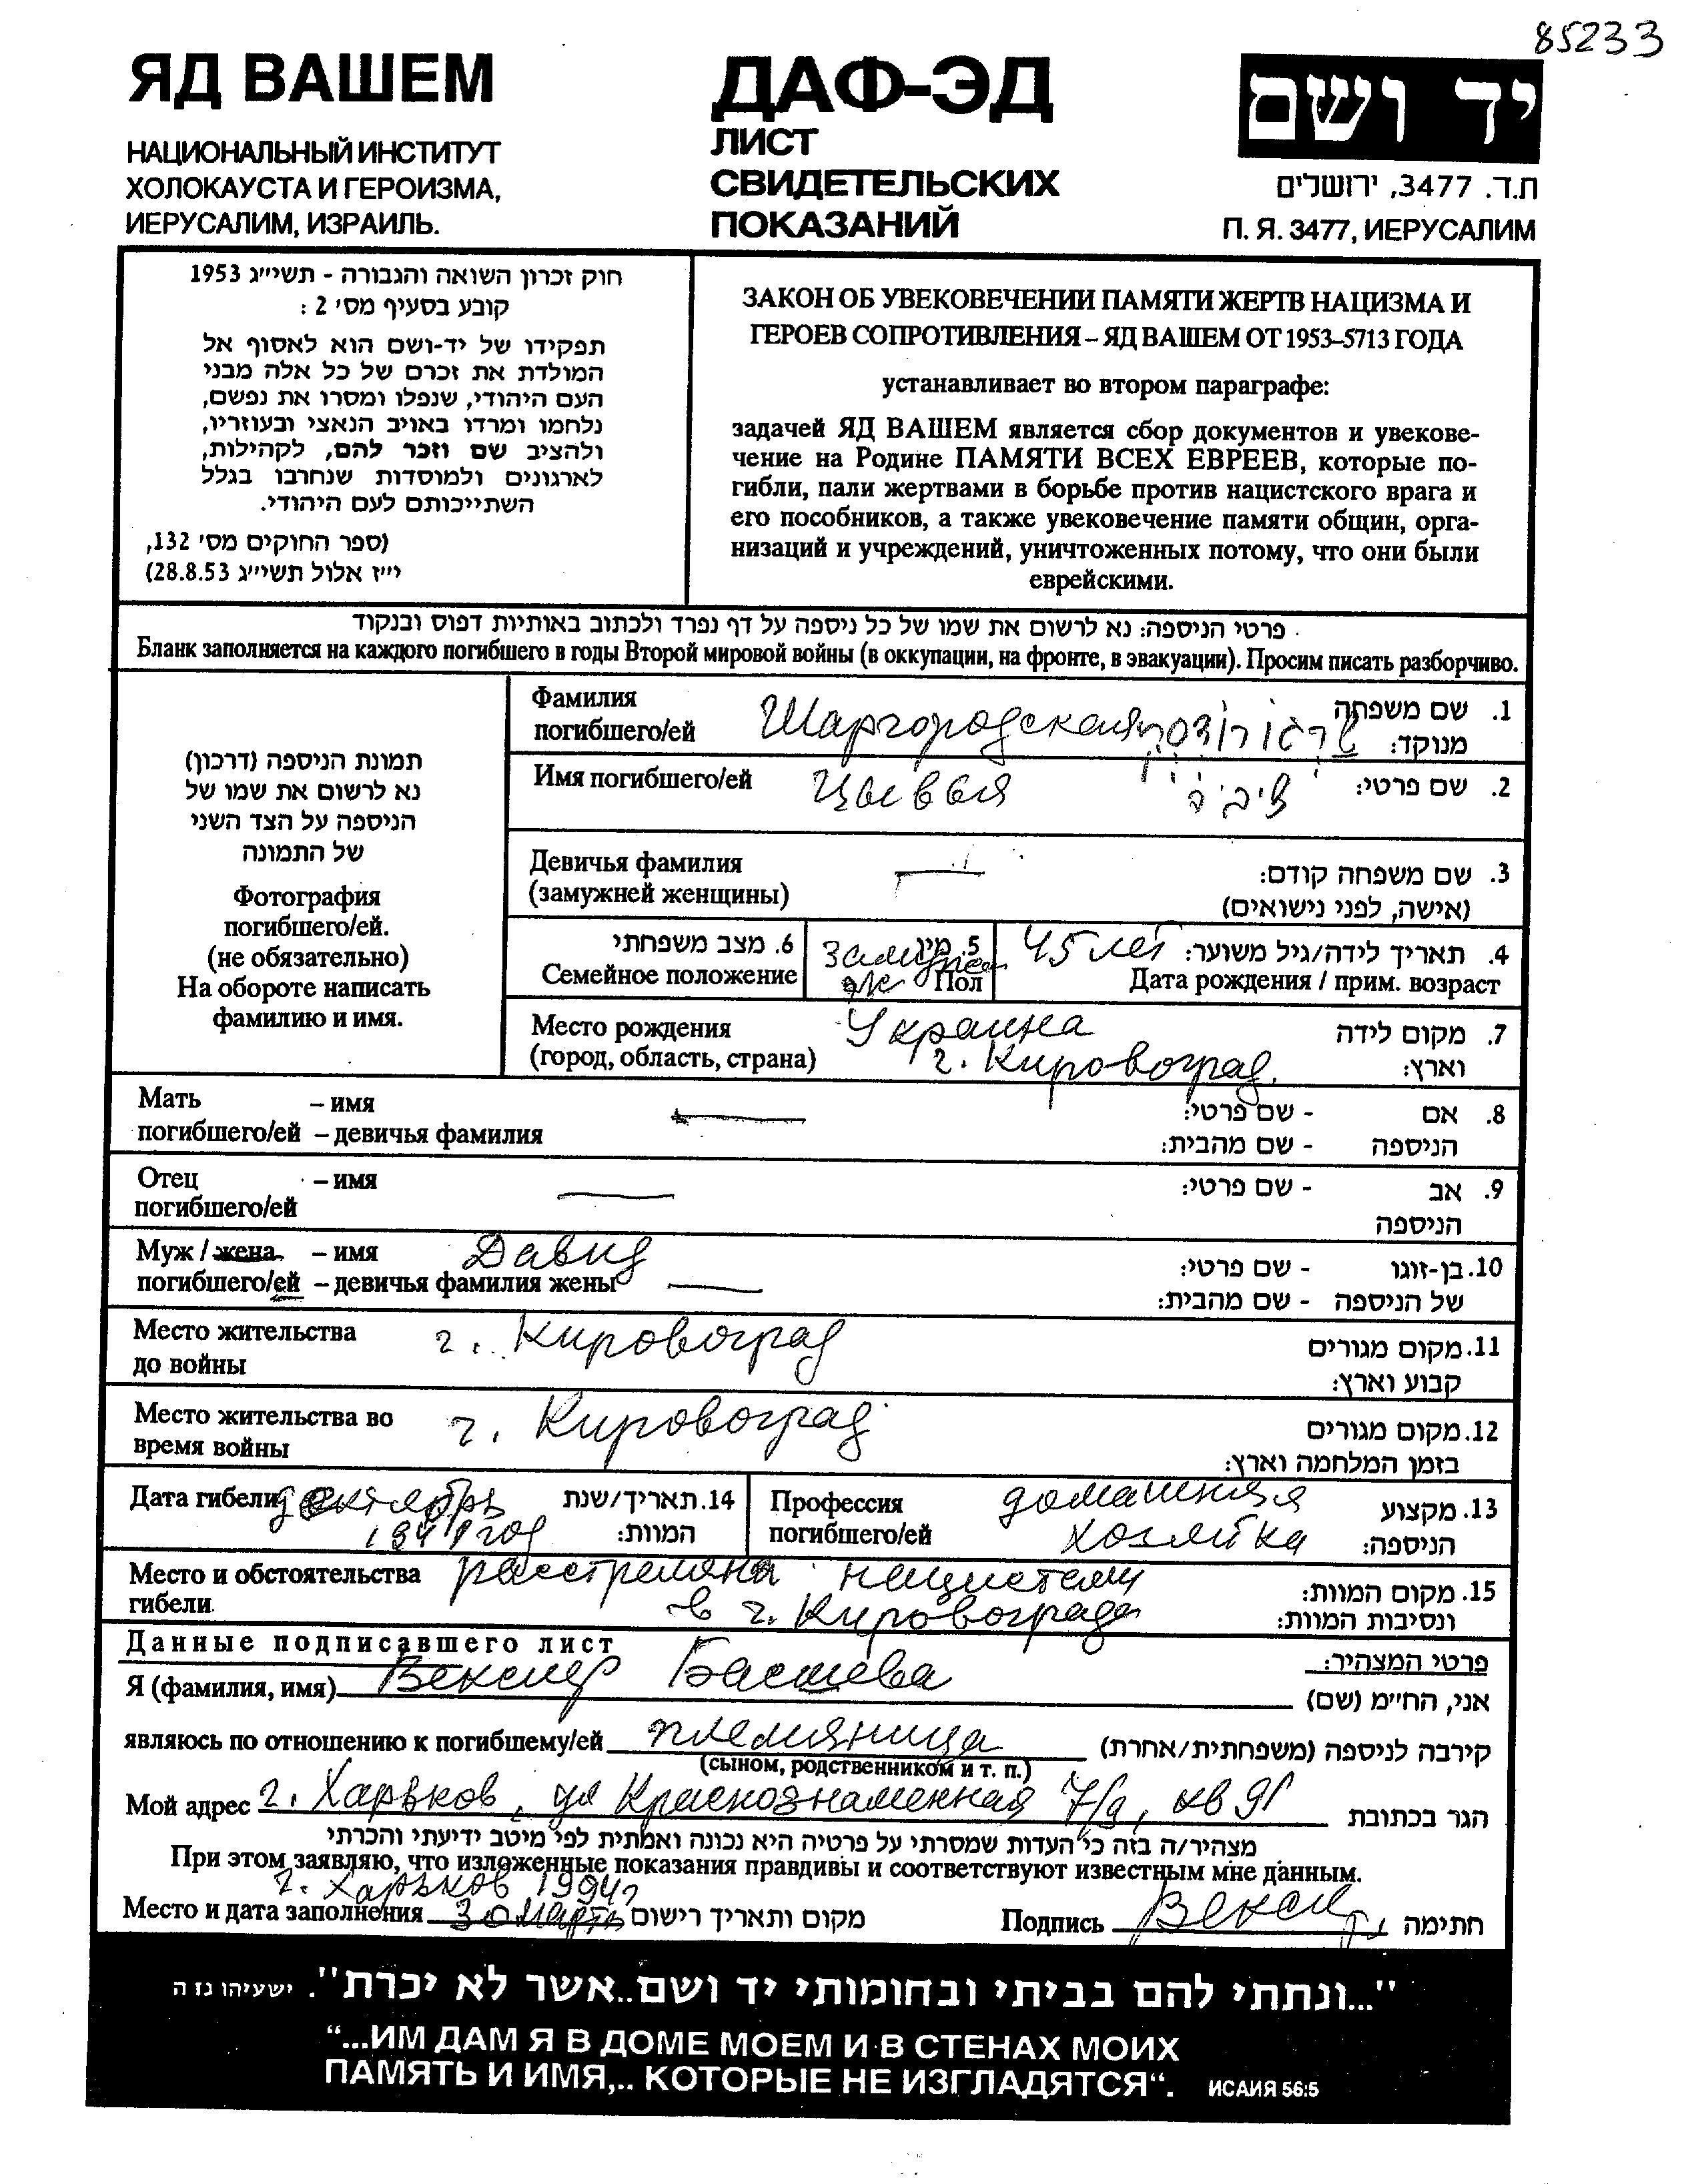 85233
ЯД ВАШЕМ
НАЦИОНАЛЬНЫЙ ИНСТИТУТ
ХОЛОКАУСТА И ГЕРОИЗМА,
ИЕРУСАЛИМ, ИЗРАИЛЬ.
ДАФ-ЭД
ЛИСТ
СВИДЕТЕЛЬСКИХ
ПОКАЗАНИЙ
יד ושם
ת.ד. 3477, ירושלים
П. Я. 3477, ИЕРУСАЛИМ
חוק זכרון השואה והגבורה - תשי״ג 1953
קובע בסעיף מס׳ 2 :
תפקידו של יד-ושם הוא לאסוף אל
המולדת את זכרם של כל אלה מבני
העם היהודי, שנפלו ומסרו את נפשם,
נלחמו ומרדו באויב הנאצי ובעוזריו,
ולהציב שם וזכר להם, לקהילות,
לארגונים ולמוסדות שנחרבו בגלל
השתייכותם לעם היהודי.
(ספר החוקים מס׳ 132,
י״ז אלול תשי״ג 28.8.53)
ЗАКОН ОБ УВЕКОВЕЧЕНИИ ПАМЯТИ ЖЕРТВ НАЦИЗМА И
ГЕРОЕВ СОПРОТИВЛЕНИЯ – ЯД ВАШЕМ ОТ 1953–5713 ГОДА
устанавливает во втором параграфе:
задачей ЯД ВАШЕМ является сбор документов и увекове-
чение на Родине ПАМЯТИ ВСЕХ ЕВРЕЕВ, которые по-
гибли, пали жертвами в борьбе против нацистского врага и
его пособников, а также увековечение памяти общин, орга-
низаций и учреждений, уничтоженных потому, что они были
еврейскими.
פרטי הניספה: נא לרשום את שמו של כל ניספה על דף נפרד ולכתוב באותיות דפוס ובנקוד
Бланк заполняется на каждого погибшего в годы Второй мировой войны (в оккупации, на фронте, в эвакуации). Просим писать разборчиво.
תמונת הניספה (דרכון)
נא לרשום את שמו של
הניספה על הצד השני
של התמונה
Фотография
погибшего/ей.
(не обязательно)
На обороте написать
фамилию и имя.
Фамилия
погибшего/ей Шаргородская שרגורודסקיה
1. שם משפחה
מנוקד:
Имя погибшего/ей Цывья ציביה 2. שם פרטי:
Девичья фамилия
(замужней женщины) —
3. שם משפחה קודם:
(אישה, לפני נישואים)
6. מצב משפחתי
Семейное положение
замужем
5. מין
Пол
жен
45 лет 4. תאריך לידה/גיל משוער:
Дата рождения / прим. возраст
Место рождения
(город, область, страна)
Украина
г. Кировоград
7. מקום לידה
וארץ:
Мать – имя
погибшего/ей – девичья фамилия —
8. אם - שם פרטי:
הניספה - שם מהבית:
Отец – имя
погибшего/ей —
9. אב - שם פרטי:
הניספה
Муж / жена – имя Давид
погибшего/ей – девичья фамилия жены —
10. בן-זוגו - שם פרטי:
של הניספה - שם מהבית:
Место жительства
до войны г. Кировоград
11. מקום מגורים
קבוע וארץ:
Место жительства во
время войны г. Кировоград
12. מקום מגורים
בזמן המלחמה וארץ:
Дата гибели октябрь
1941 год
14. תאריך/שנת
המוות:
Профессия
погибшего/ей
домашняя
хозяйка
13. מקצוע
הניספה:
Место и обстоятельства
гибели
расстреляна нацистами
в г. Кировограде
15. מקום המוות:
ונסיבות המוות:
Данные подписавшего лист
פרטי המצהיר:
Я (фамилия, имя) Векслер Басшева אני, הח״מ (שם)
являюсь по отношению к погибшему/ей племянница קירבה לניספה (משפחתית/אחרת)
(сыном, родственником и т. п.)
Мой адрес г. Харьков, ул Краснознаменная 7/9, кв 91 הגר בכתובת
מצהיר/ה בזה כי העדות שמסרתי על פרטיה היא נכונה ואמתית לפי מיטב ידיעתי והכרתי
При этом заявляю, что изложенные показания правдивы и соответствуют известным мне данным.
г. Харьков 1994г
Место и дата заполнения 30 марта מקום ותאריך רישום
Подпись Векслер חתימה
"...ונתתי להם בביתי ובחומותי יד ושם..אשר לא יכרת". ישעיהו נז ה
“...ИМ ДАМ Я В ДОМЕ МОЕМ И В СТЕНАХ МОИХ
ПАМЯТЬ И ИМЯ,.. КОТОРЫЕ НЕ ИЗГЛАДЯТСЯ“. ИСАИЯ 56:5